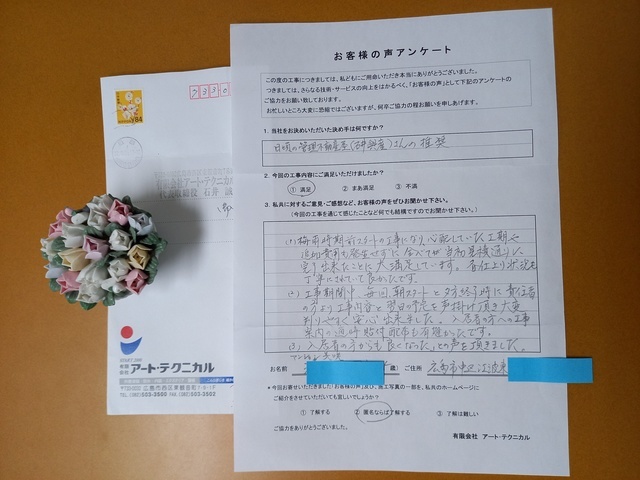 お客様の声アンケート
この度の工事につきましては、私どもにご用命いただき本当にありがとうございました。
つきましては、さらなる技術・サービスの向上をはかるべく、「お客様の声」として下記のアンケートの
ご協力をお願い致しております。
お忙しいところ大変に恐縮ではございますが、何卒ご協力の程お願いを申しあげます。
1. 当社をお決めいただいた決め手は何ですか?
日頃の管理不動産業 さんの推奨
2. 今回の工事内容にご満足いただけましたか?
① 満足 ② まあ満足 ③ 不満
3. 私共に対するご意見・ご感想など、お客様の声をぜひお聞かせ下さい。
(今回の工事を通じて感じたことなど何でも結構ですのでお聞かせ下さい。)
(1) 梅雨時期前スタートの工事になり心配していた工期や
追加費用も発生せずに全てが当初見積通りに
完了出来たことに大満足しています。責任上り状況も
丁寧にされていて良かったです。
(2) 工事期間中、毎回、朝スタートと夕方終了時に責任者
の方より工事内容と翌日の予定を声掛け頂き大変
判りやすく安心出来ました。入居者の方への工事
案内の適時貼付配布も有難かったです。
(3) 入居者の方からも「良くなった」との声を頂きました。
お名前 歳) ご住所 広島市中区
*今回お寄せいただきましたお客様の声及び、施工写真の一部を、私共のホームページに
ご紹介をさせていただいても宜しいでしょうか?
① 了解する ② 匿名ならば了解する ③ 了解は難しい
ご協力をありがとうございました。
有限会社 アート・テクニカル
7330
84
代表取締役 石井
START 2001
有限会社 アート・テクニカル
広島市西区東観音町
TEL(082)503-3500 FAX(082)503-3502